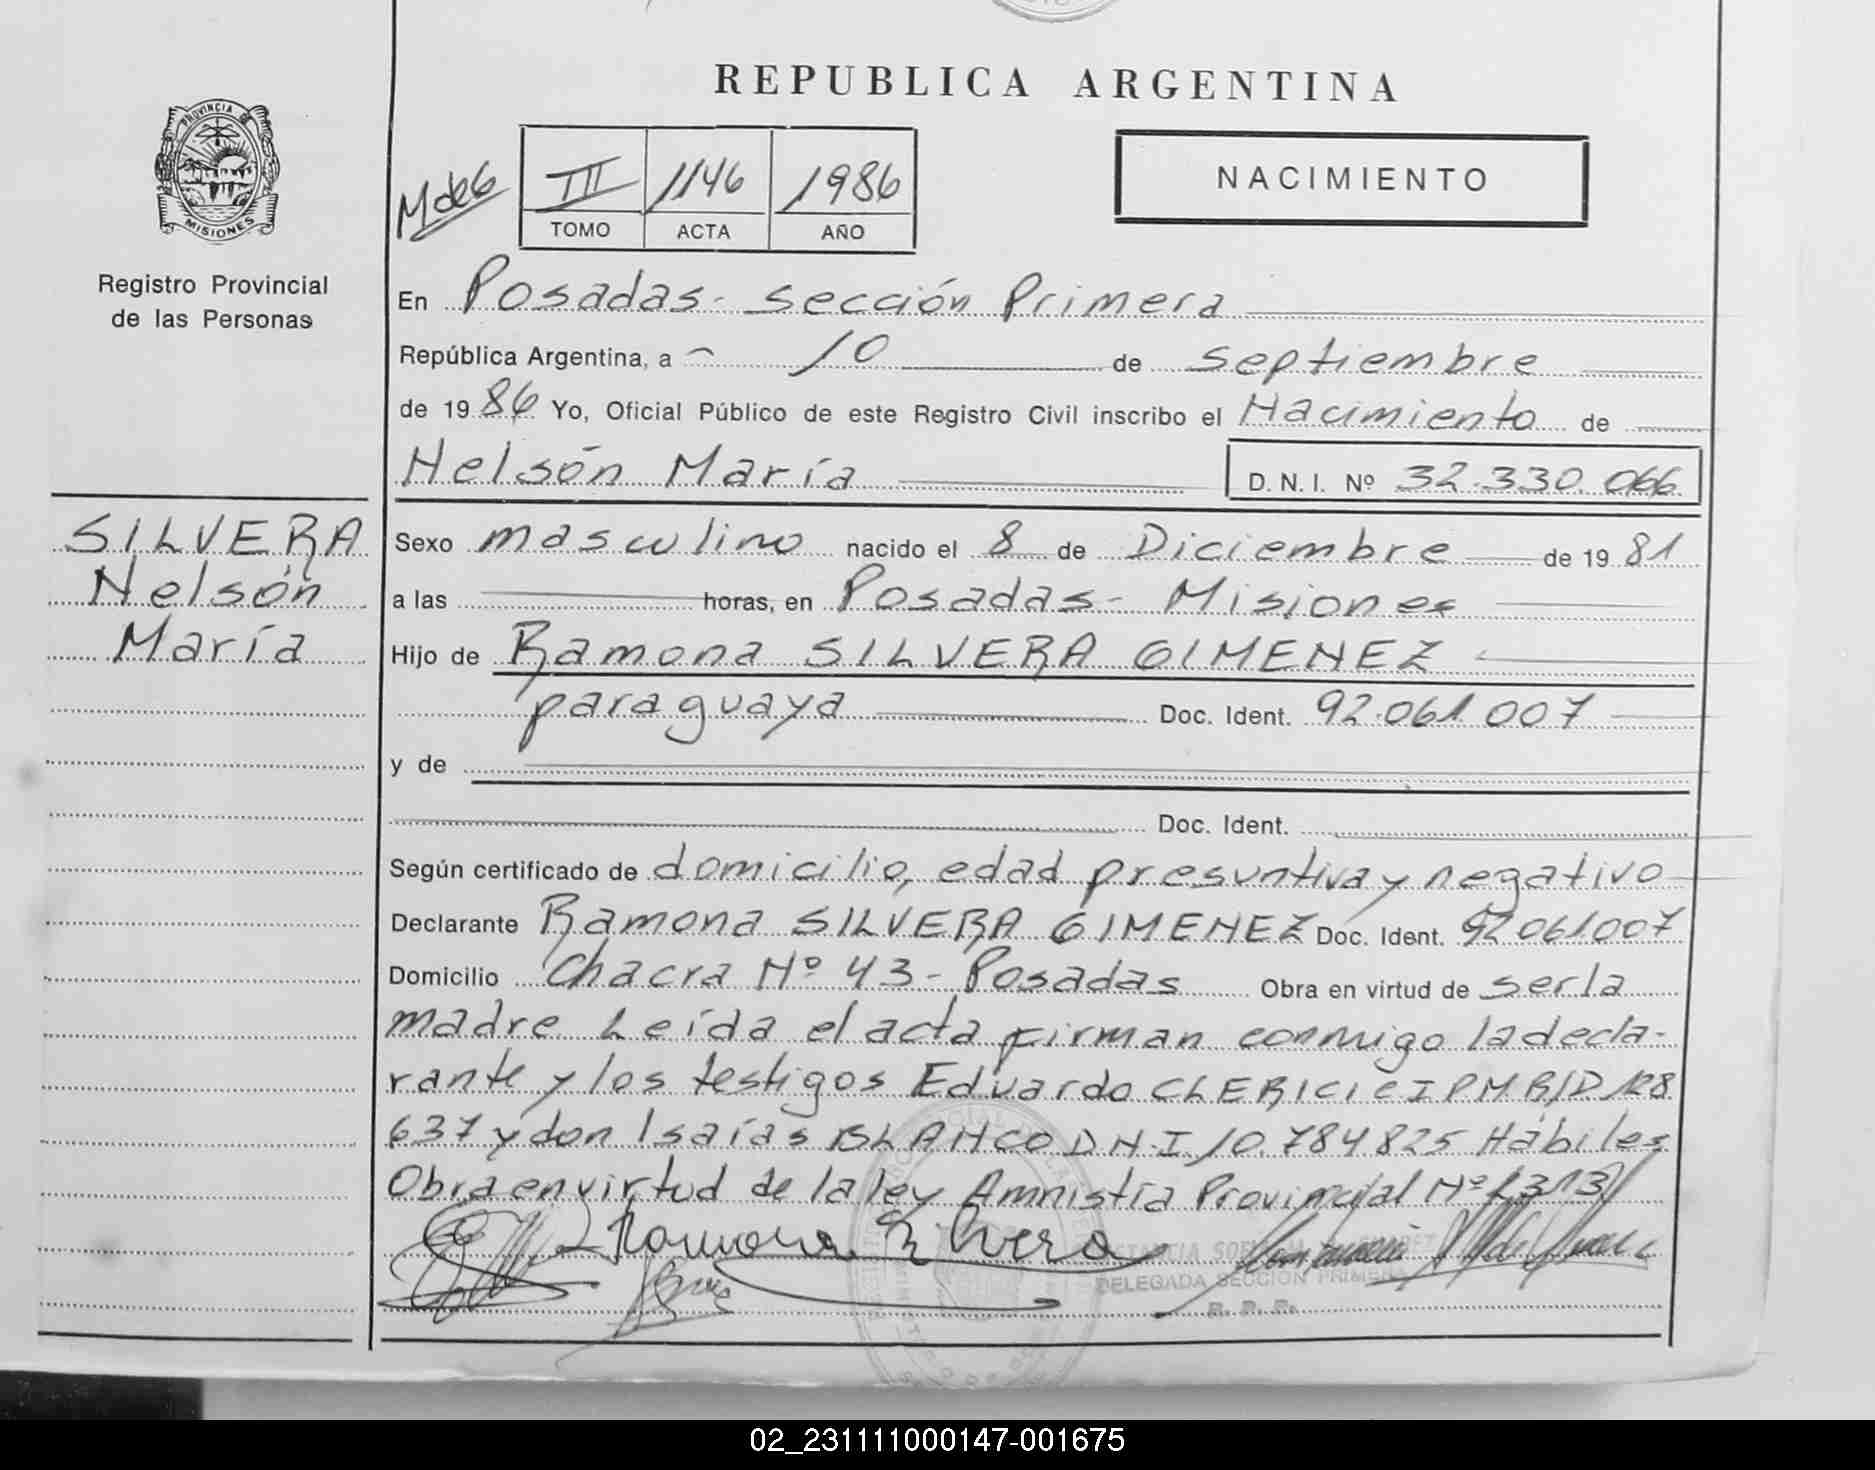 REPUBLICA ARGENTINA
PROVINCIA DE MISIONES
Registro Provincial
de las Personas
M de 6
III 1146 1986
TOMO ACTA AÑO
NACIMIENTO
En Posadas- Sección Primera
República Argentina, a 10 de septiembre
de 1986 Yo, Oficial Público de este Registro Civil inscribo el Nacimiento de
Nelsón María D. N. I. Nº 32.330.066
SILVERA
Nelsón
María
Sexo masculino nacido el 8 de Diciembre de 1981
a las horas, en Posadas- Misiones
Hijo de Ramona SILVERA GIMENEZ
paraguaya Doc. Ident. 92.061.007
y de
Doc. Ident.
Según certificado de domicilio, edad presuntiva y negativo
Declarante Ramona SILVERA GIMENEZ Doc. Ident. 92.061.007
Domicilio Chacra Nº 43- Posadas Obra en virtud de ser la
madre. Leída el acta firman conmigo la decla-
rante y los testigos Eduardo CLERICI CIPMR/D 128
637 y don Isaías BLANCO D.N.I. 10.784825 Hábiles
Obra en virtud de la ley Amnistía Provincial Nº
Ramona Silvera
DELEGADA SECCION PRIMERA
R. P. P.
02_231111000147-001675